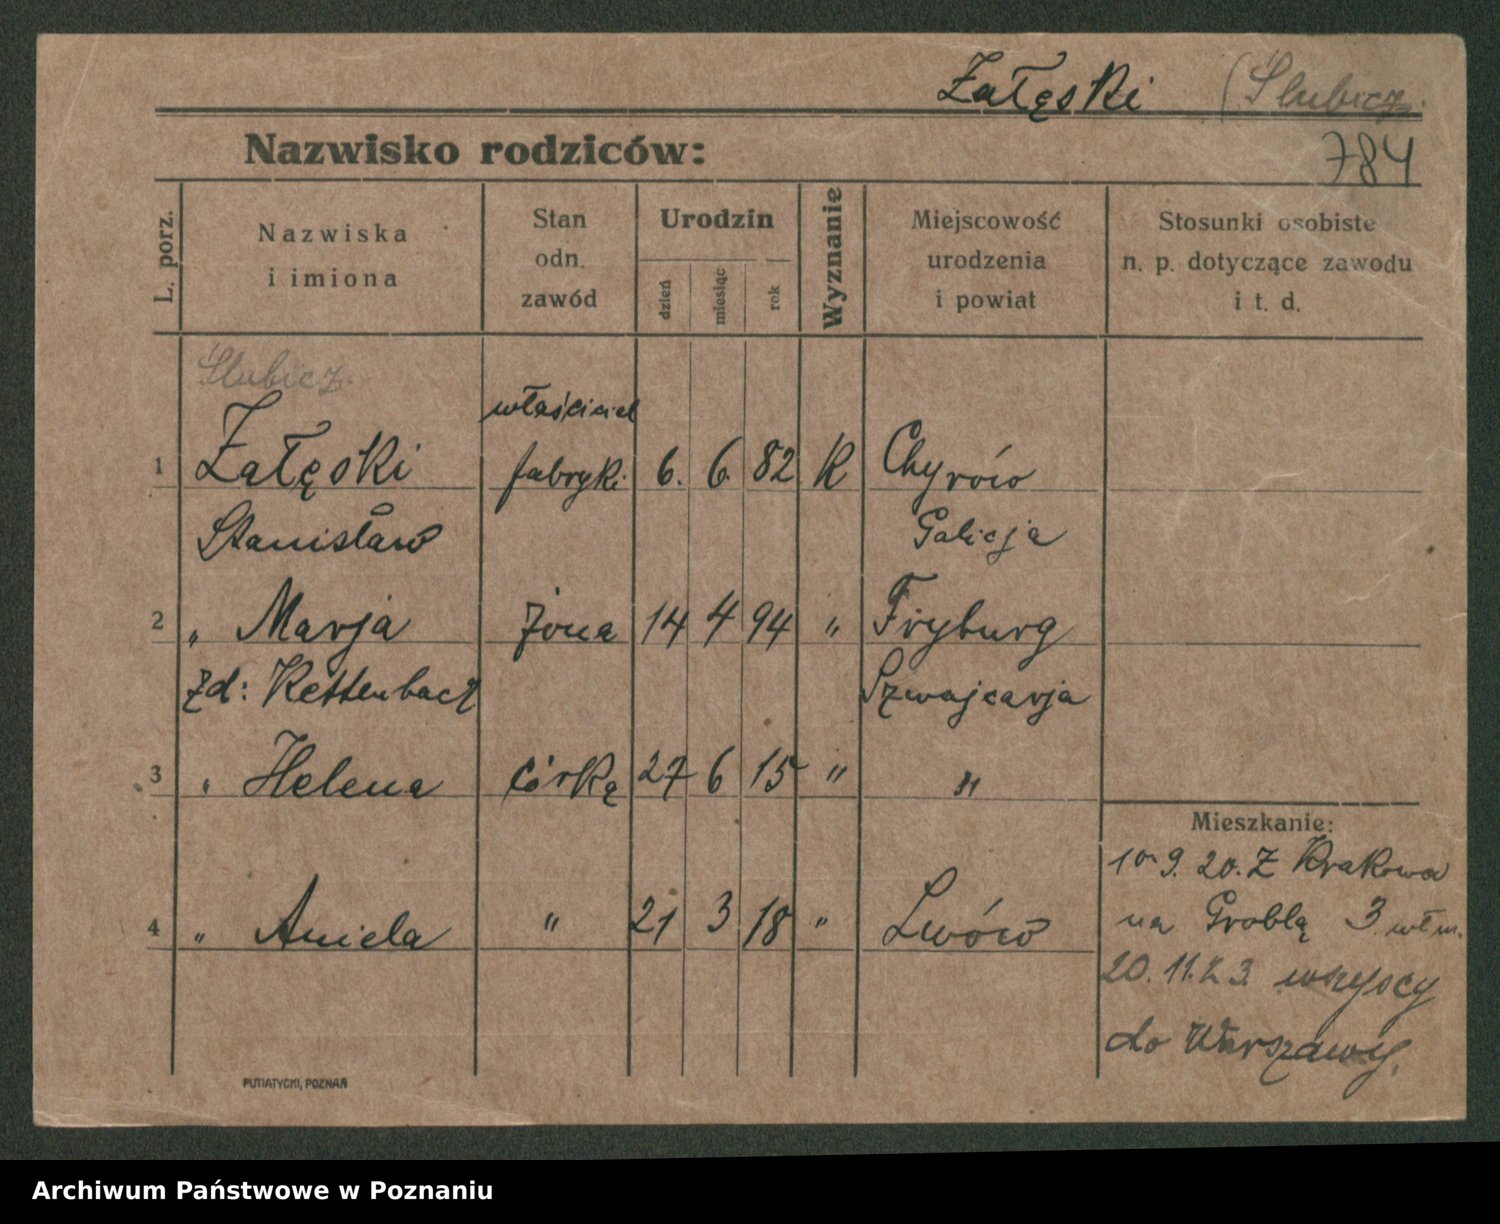 Załęski (Slubicz.
Nazwisko rodziców:
784
L. porz.
Nazwiska
i imiona
Stan
odn.
zawód
Urodzin
dzień
miesiąc
rok
Wyznanie
Miejscowość
urodzenia
i powiat
Stosunki osobiste
n. p. dotyczące zawodu
i t. d.
Slubicz.
właściciel
1 Załęski fabryki 6. 6. 82 K Chyrów
Stanisław Galicja
2 " Marja żona 14 4 94 " Fryburg
zd: Szwajcarja
3 " Helena córka 27 6 15 " "
Mieszkanie:
10.9.20. Z Krakowa
4 " Aniela " 21 3 18 " Lwów
na Groblą 3 wł m.
20.11.23. wszyscy
do Warszawy.
PUTIATYCKI, POZNAŃ
Archiwum Państwowe w Poznaniu